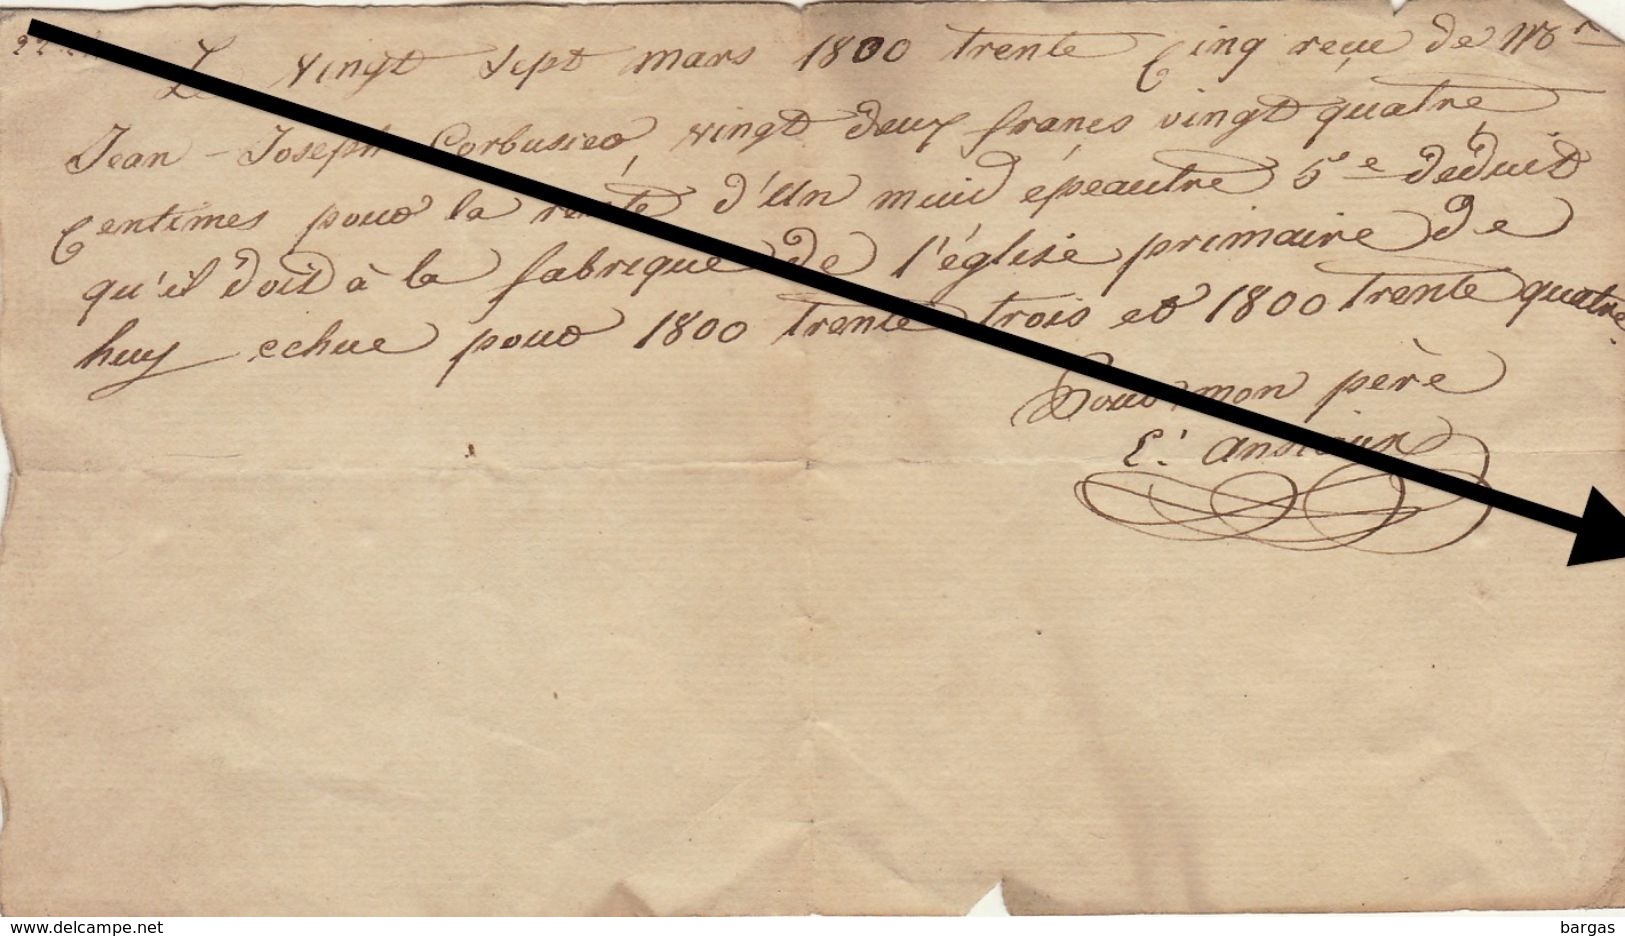 Le vingt sept mars 1800 trente Cinq reçue de Mr
Jean - Joseph Corbusier, vingt deux francs vingt quatre
Centimes pour la rente d'un muid épeautre 5e déduit
qu'il doit à la fabrique de l'église primaire de
huy echue pour 1800 trente trois et 1800 trente quatre.
Pour mon père
L. Ansiaux
www.delcampe.net
bargas